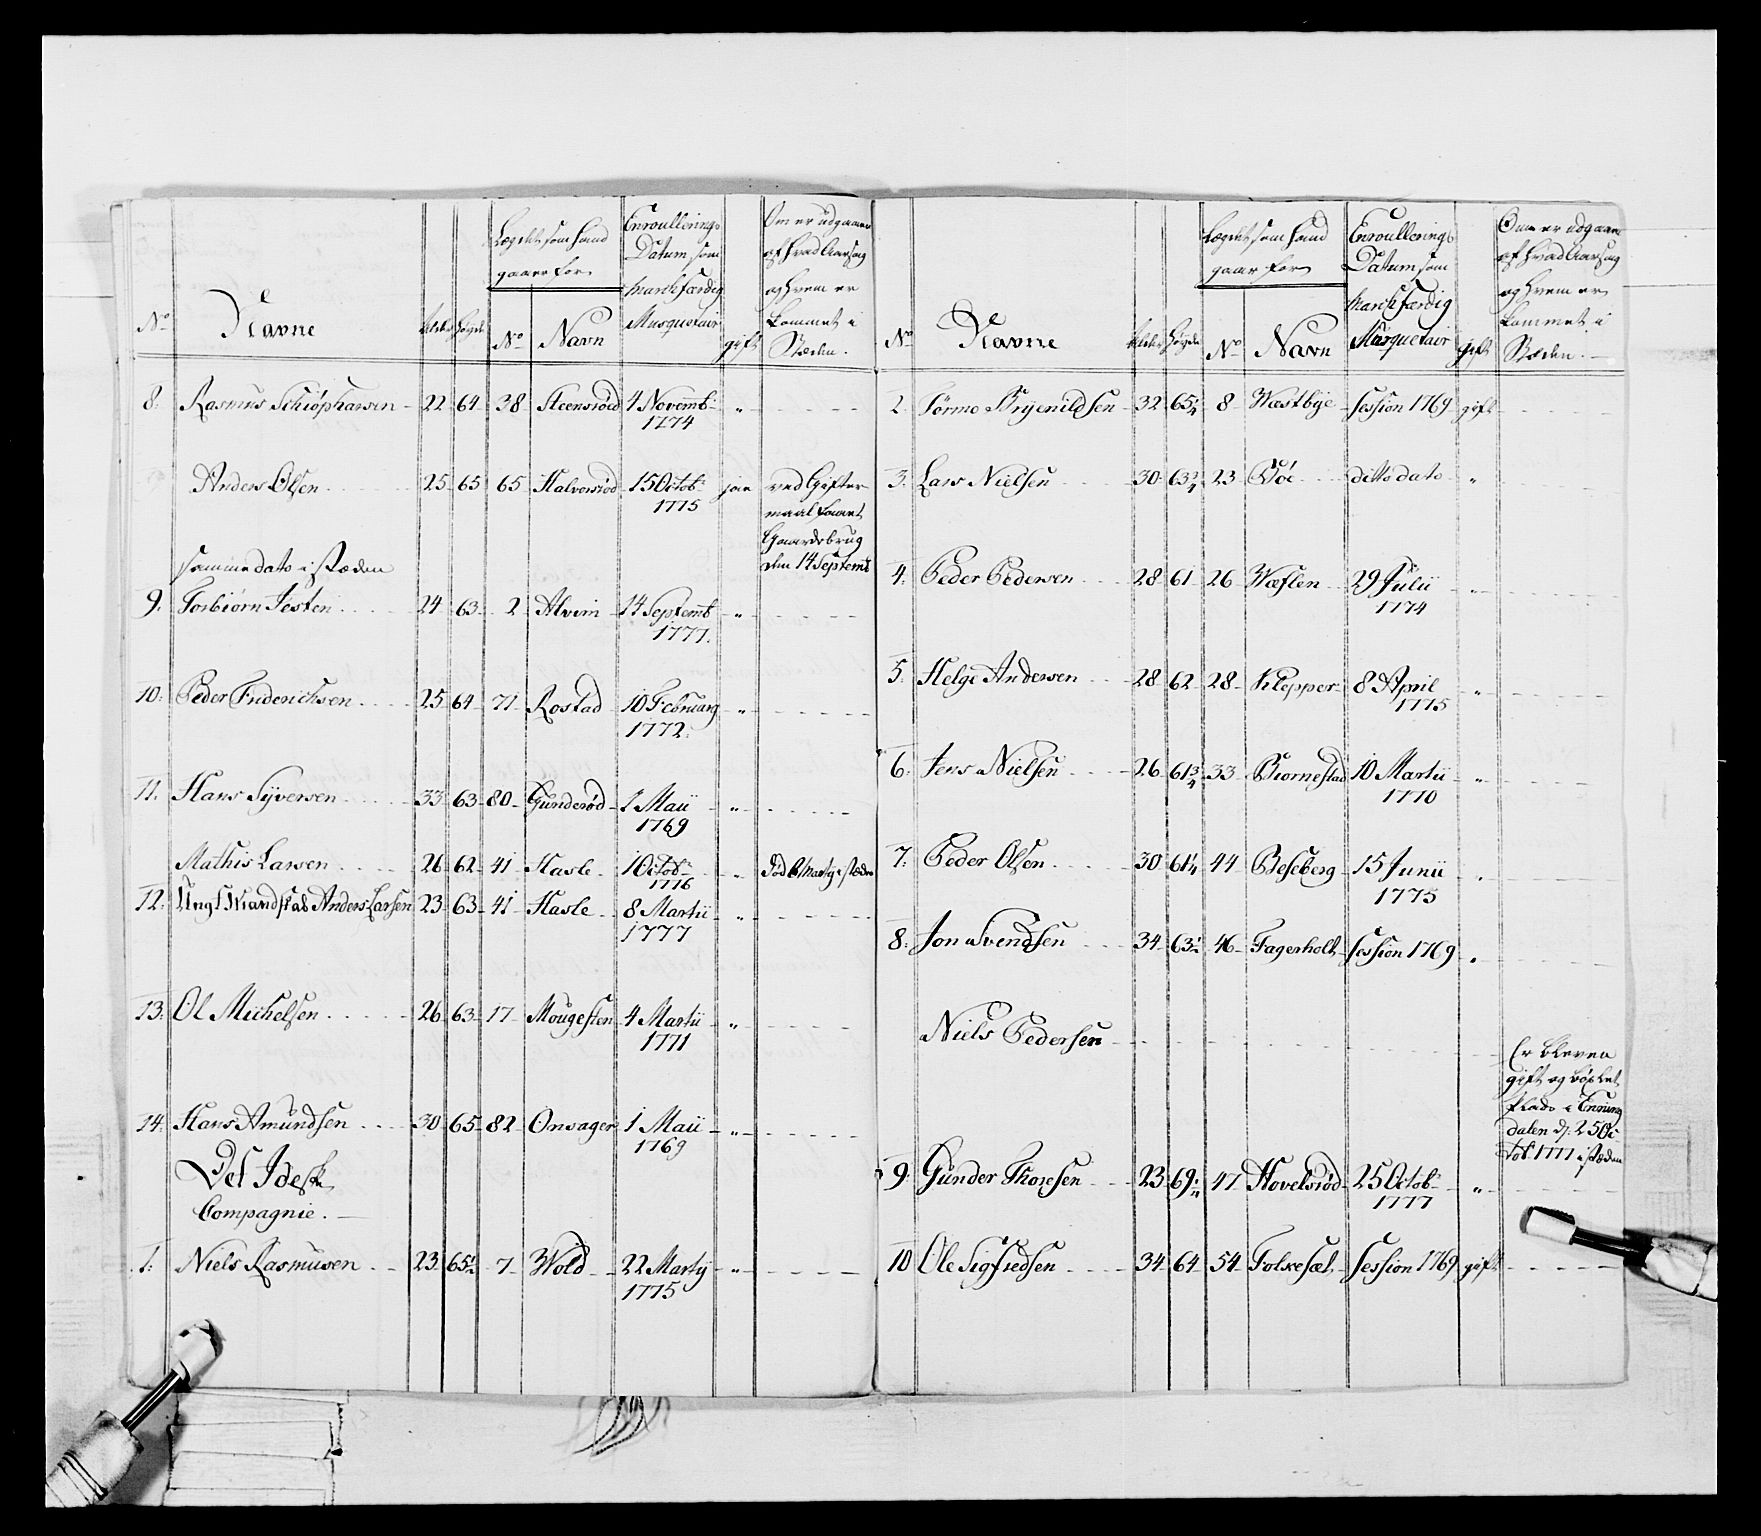 No Navne Alder Høyde Lægdet som hand gaaer for No Navn Enroullerings Datum som Marchfærdig Musquetair gift Om er udgaaen af hvad Aarsag og hvem er kommet i Stæden.
8. Rasmus Schiøpharsen 22 64 38 Steensrød 4 Novembr 1774 "
Anders Olsen 25 65 65 Halvorsrød 15 Octob: 1775 jae ved Gifter
maal faaet
Gaardebrug
den 14 Septemb
samme dato i stæden
9. Torbiørn Testen 24 63 2 Alvim 14 Septemb 1777. "
10. Peder Friderichsen 25 64 71 Rostad 10 Februarij 1772. "
11. Hans Syversen 33 63 80 Gunderød 1 Maii 1769 "
Mathis Larsen 26 62 41 Hasle 1 Octob: 1776 " Død 8 Martij i stæden
12. Ungt Mandskab Anders Larsen 23 63 41 Hasle 8 Martii 1777 "
13. Ol Michelsen 26 63 17 Mougesten 4 Martii 1771 "
14. Hans Amundsen 30 65 82 Onsager 1 Maii 1769 "
Det Idesk
Compagnie.
1. Niels Rasmusen 23 65½ 7 Wold 22 Martij 1775 "
No Navne Alder Høyde Lægdet som hand gaar for No Navn Enroullerings Datum som Marchfærdig Musquetair Gift Om er udgaaen af hvad Aarsag og hvem er kommet i Stæden.
2. Tørmo Brijenildsen 32 65¼ 8 Wæstbye Session 1769 gift
3. Lars Nielsen 30 63¾ 23 Bøe ditto dato "
4. Peder Pedersen 28 61 26 Wæflen 29 Julii 1774 "
5. Helge Andersen 28 62 28 Klepper 8 April 1775 "
6. Jens Nielsen 26 61¾ 33 Biornestad 10 Martii 1770 "
7. Peder Olsen 30 61¼ 44 Beseberg 15 Junii 1775 "
8. Jon Svendsen 34 63½ 46 Fagerholt Session 1769 "
Niels Pedersen
Er bleven
gift og bøxlet
Plads i Enning
dalen d: 25 Oc
tob: 1777 i stæden
9. Gunder Thoresen 23 69½ 47 Hovelsrød 25 Octob: 1777 "
10 Ole Sigfredsen 34 64 54 Folkesæl Session 1769 gift